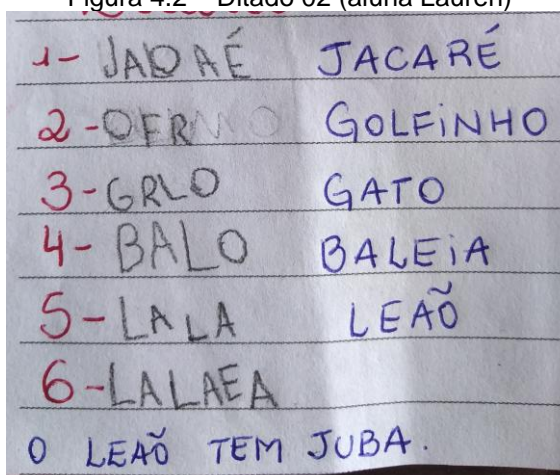 Figura 4.2 – Ditado 02 (aluna Lauren)
1- JADAÉ JACARÉ
2- OFRMO GOLFINHO
3- GRLO GATO
4- BALO BALEIA
5- LALA LEAÕ
6- LALAEA
O LEAÕ TEM JUBA.